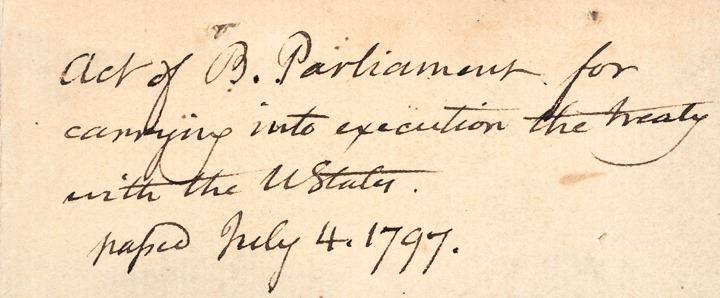 Act of B. Parliament for
carrying into execution the treaty
with the UStates.
paſsed July 4. 1797.